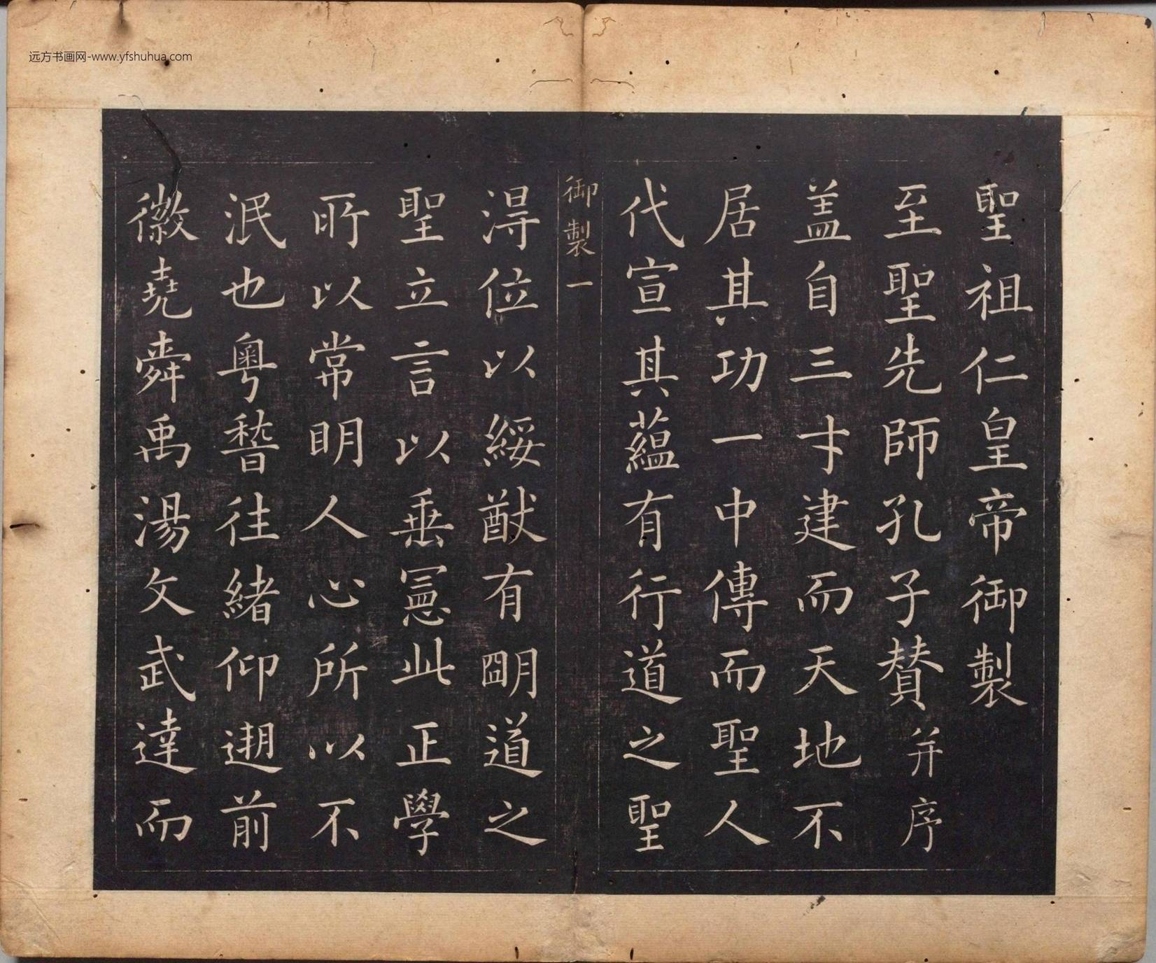 远方书画网-www.yfshuhua.com
聖祖仁皇帝御製
至聖先師孔子贊并序
盖自三才建而天地不
居其功一中傳而聖人
代宣其蘊有行道之聖
御製一
淂位以綏猷有朙道之
聖立言以垂憲此正學
所以常明人心所以不
泯也粤稽徃緒仰遡前
徽堯舜禹湯文武達而